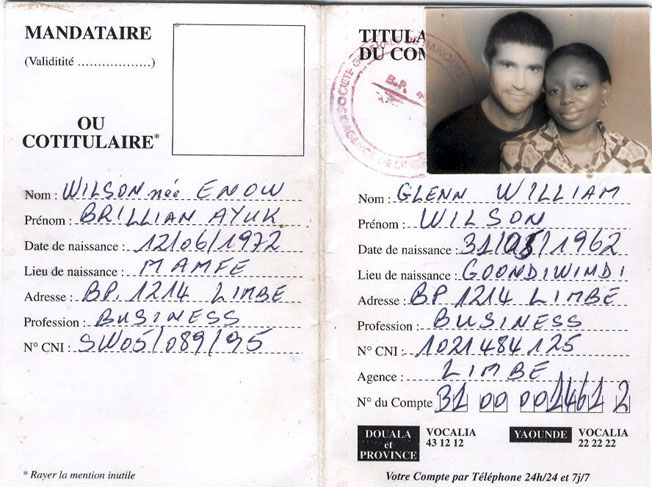 MANDATAIRE
(Validitité ..................)
OU
COTITULAIRE*
Nom : WILSON née ENOW
Prénom : BRILLIAN AYUK
Date de naissance : 12/06/1972
Lieu de naissance : MAMFE
Adresse : BP. 1214 LIMBE
Profession : BUSINESS
N° CNI : SW05/089/95
* Rayer la mention inutile
TITULA
DU COM
SOCIETE
B.P.
AGENCE DE
Nom : GLENN WILLIAM
Prénom : WILSON
Date de naissance : 31/05/1962
Lieu de naissance : GOONDIWINDI
Adresse : BP 1214 LIMBE
Profession : BUSINESS
N° CNI : 1021484125
Agence : LIMBE
N° du Compte 31 00 00014612
DOUALA et PROVINCE VOCALIA 43 12 12
YAOUNDE VOCALIA 22 22 22
Votre Compte par Téléphone 24h/24 et 7j/7